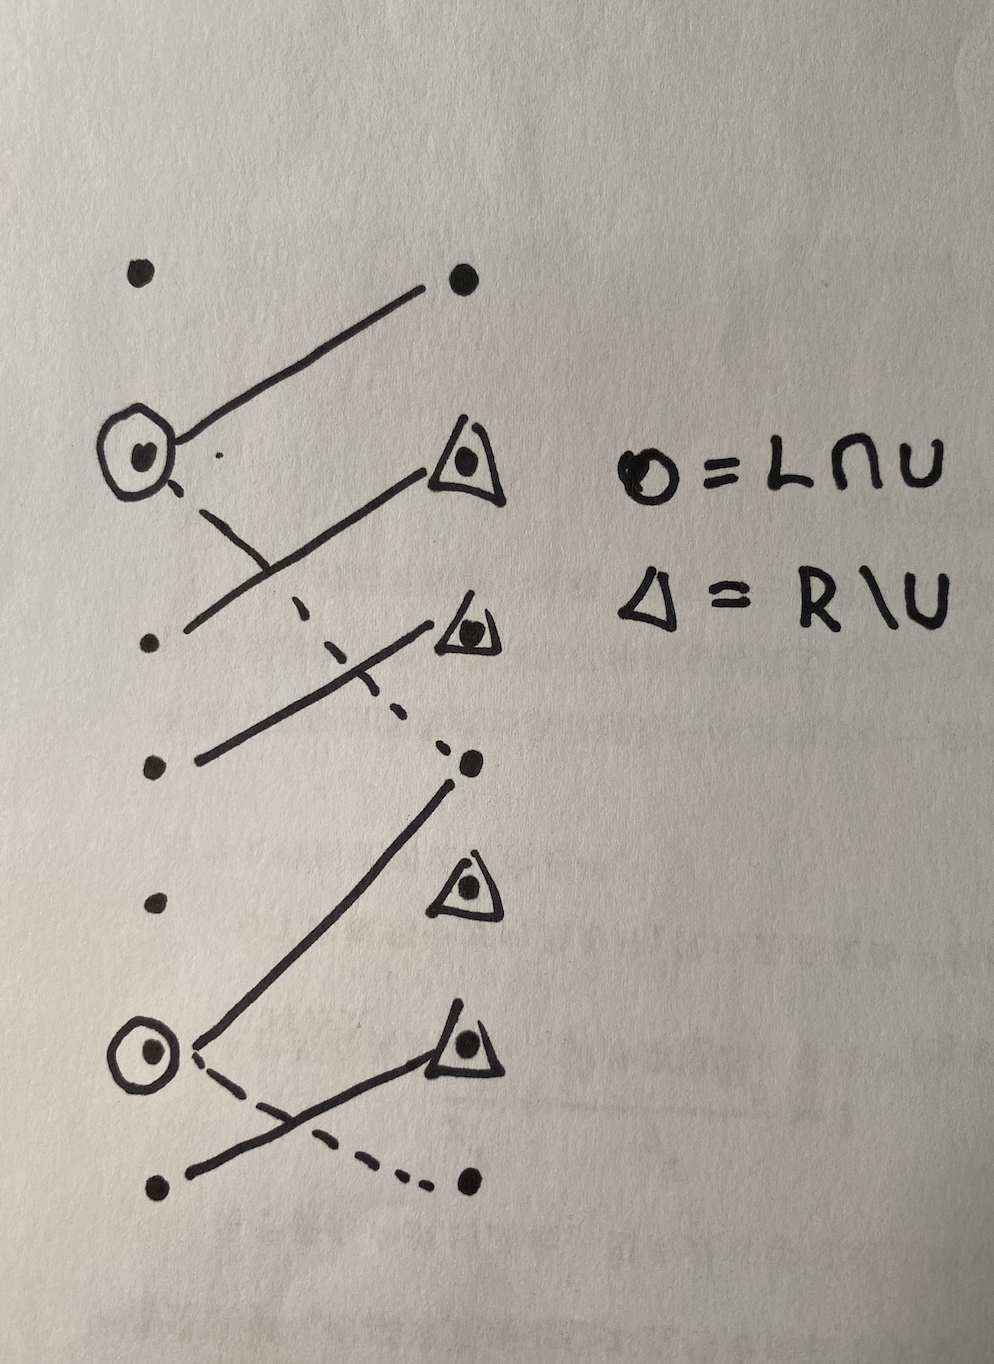 O = L ∩ U
Δ = R \ U